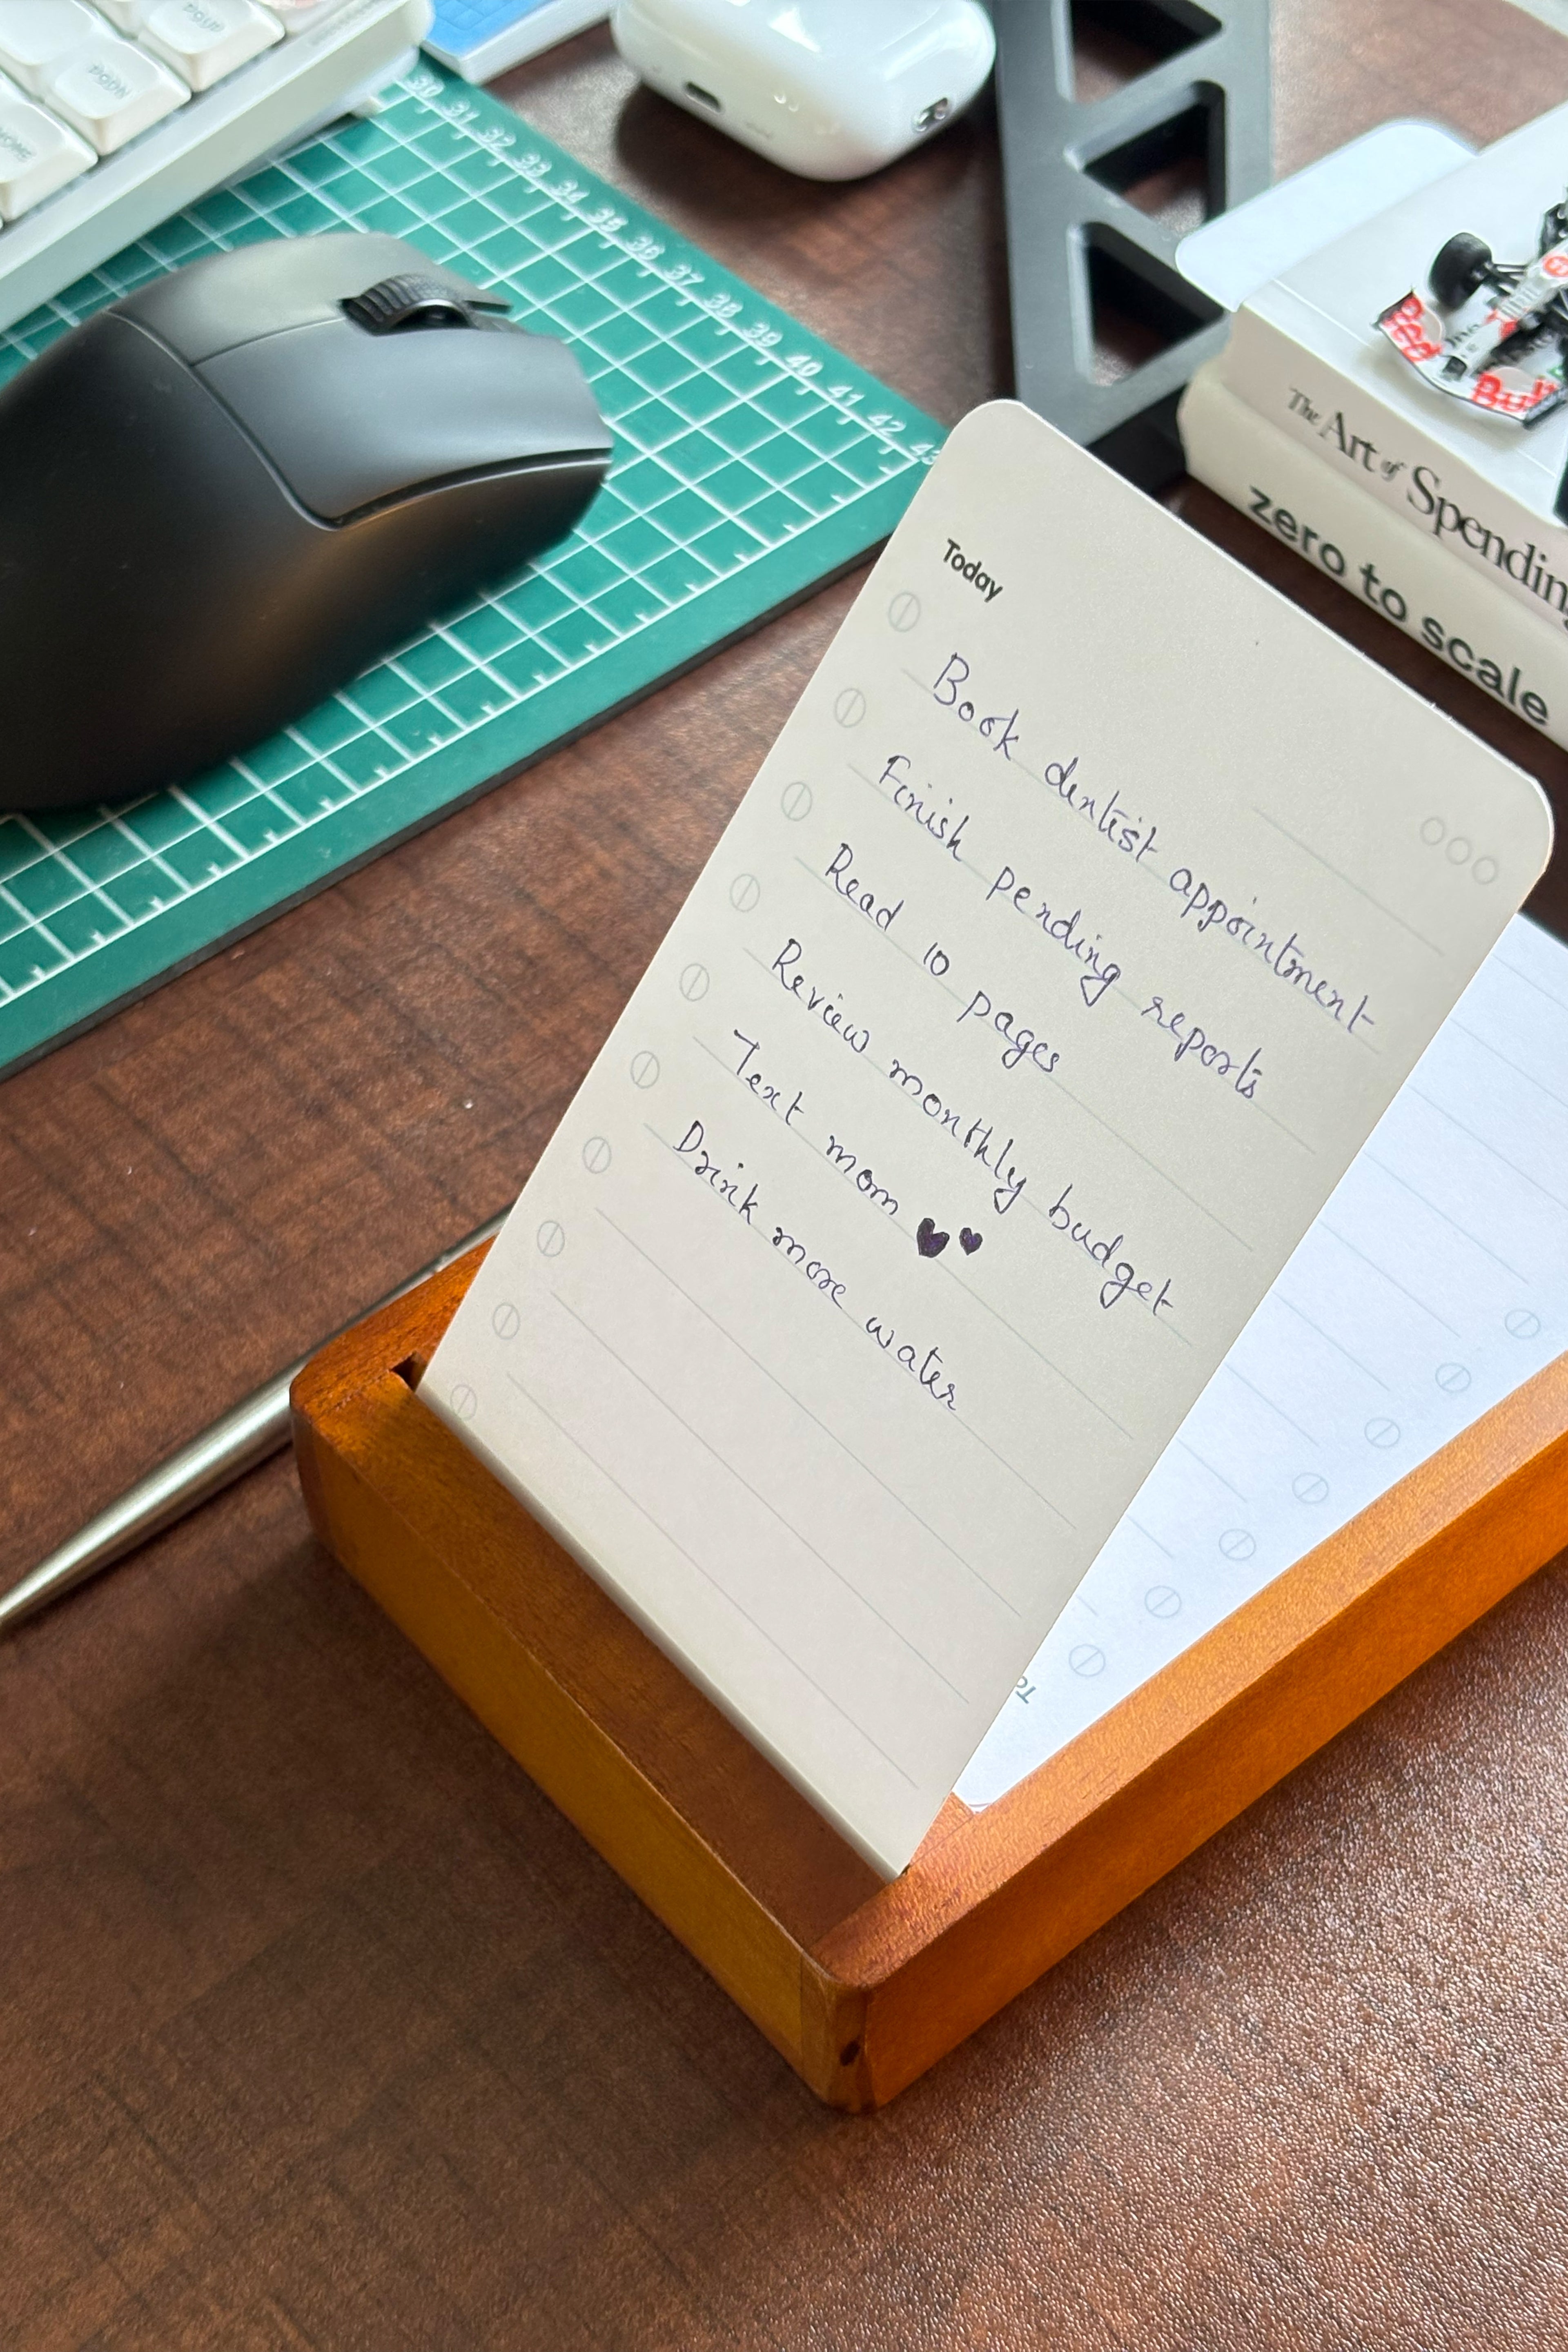 30 31 32 33 34 35 36 37 38 39 40 41 42 43
The Art of Spending
zero to scale
Today
Book dentist appointment
Finish pending reports
Read 10 pages
Review monthly budget
Text mom ♥♥
Drink more water